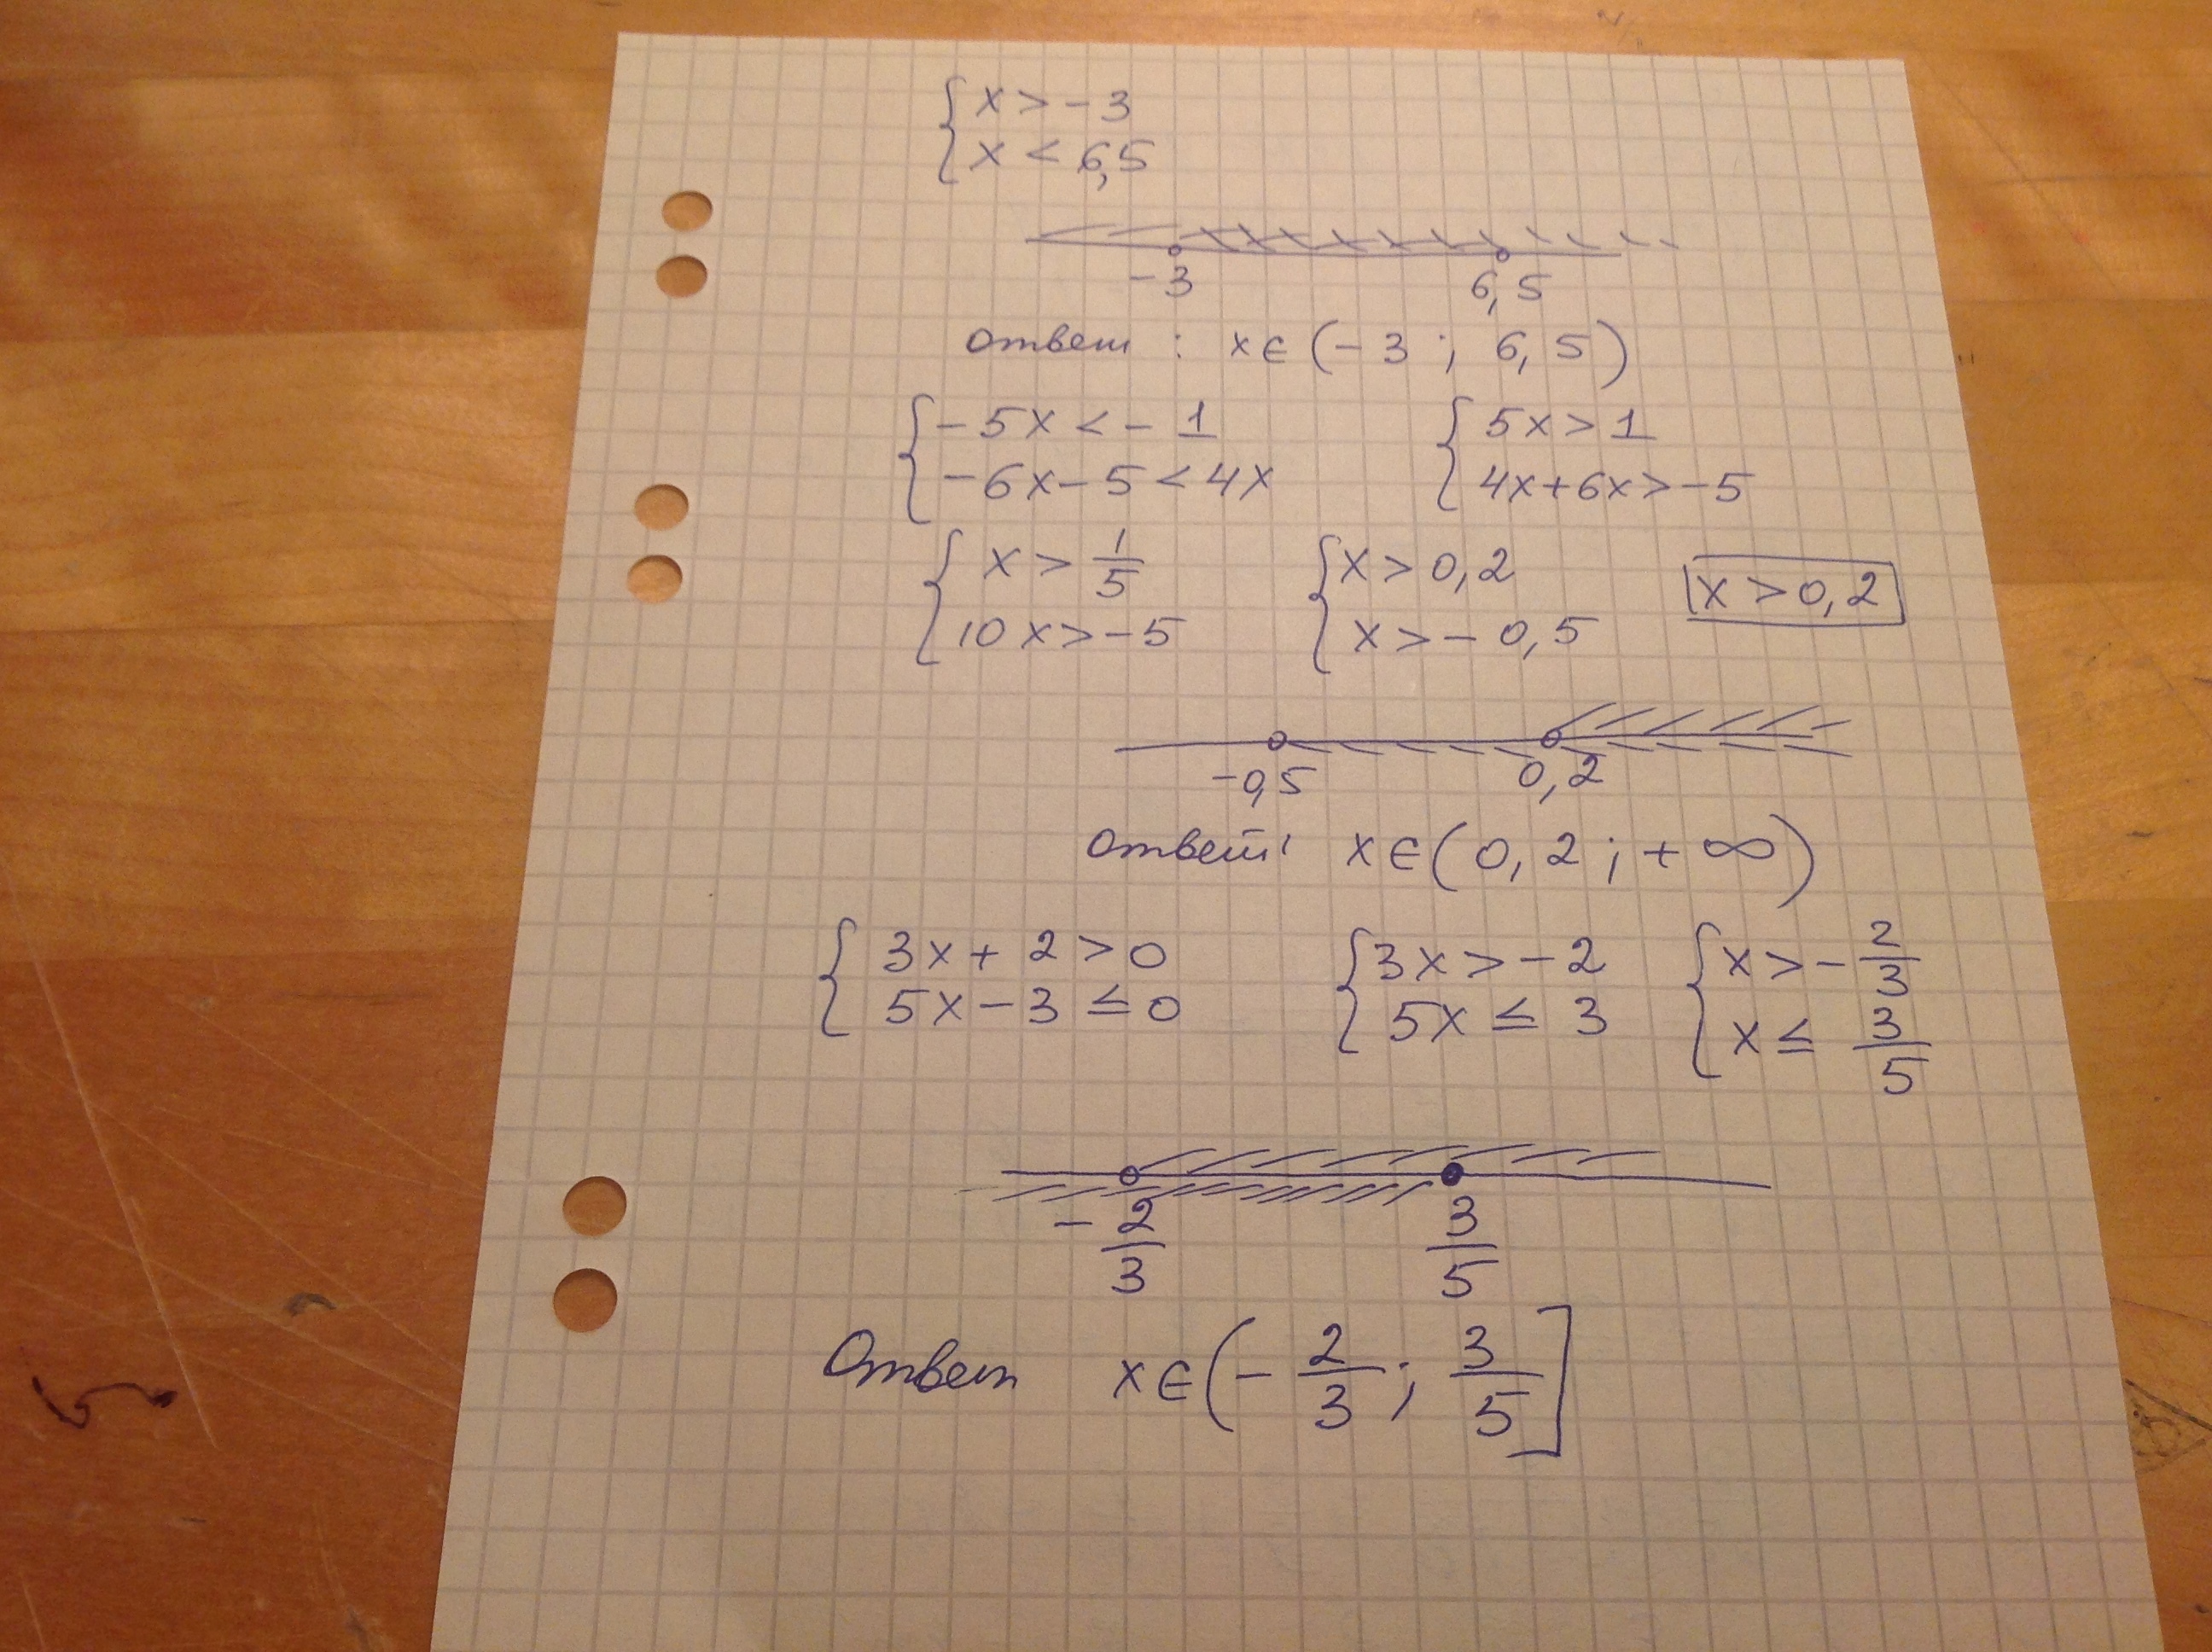 { x > - 3
x < 6,5
-3 6,5
ответ : x ∈ (- 3 ; 6,5)
{ - 5x < - 1 { 5x > 1
-6x - 5 < 4x 4x + 6x > -5
{ x > 1/5 { x > 0,2 x > 0,2
10x > -5 x > - 0,5
-0,5 0,2
ответ: x ∈ (0,2 ; + ∞)
{ 3x + 2 > 0 { 3x > -2 { x > - 2/3
5x - 3 ≤ 0 5x ≤ 3 x ≤ 3/5
- 2/3 3/5
Ответ x ∈ (- 2/3 ; 3/5]